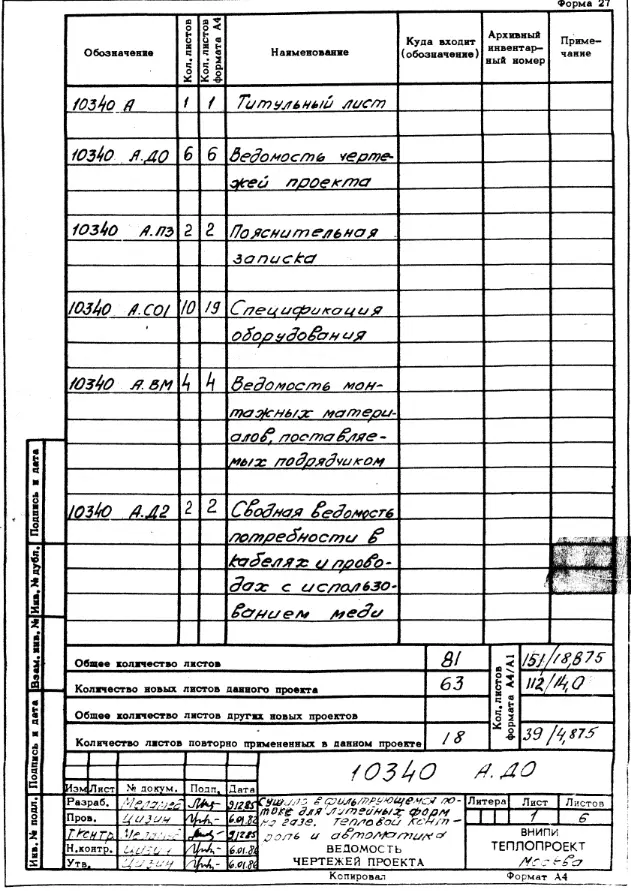 Форма 27
Обозначение Кол. листов Кол. листов формата А4 Наименование Куда входит (обозначение) Архивный инвентарный номер Примечание
10340 А 1 1 Титульный лист
10340 А.ДО 6 6 Ведомость черте-
жей проекта
10340 А.ПЗ 2 2 Пояснительная
записка
10340 А.СО1 10 19 Спецификация
оборудования
10340 А.ВМ 4 4 Ведомость мон-
тажных матери-
алов, поставляе-
мых подрядчиком
10340 А.Д2 2 2 Сводная ведомость
потребности в
кабелях и прово-
дах с использо-
ванием меди
Общее количество листов 81 Кол. листов формата А4/А1 151/18,875
Количество новых листов данного проекта 63 112/14,0
Общее количество листов других новых проектов
Количество листов повторно примененных в данном проекте 18 39/4,875
10340 А.ДО
Изм Лист № докум. Подп. Дата
Разраб. 9.12.85 Сушило в фильтрующемся по- Литера Лист Листов
Пров. Цизин 6.01.86 токе для литейных форм 1 6
Т.контр. 9.12.85 на газе. Тепловой конт-
Н.контр. Цизин 6.01.86 роль и автоматика
Утв. Цизин 6.01.86
ВЕДОМОСТЬ
ЧЕРТЕЖЕЙ ПРОЕКТА
ВНИПИ
ТЕПЛОПРОЕКТ
Москва
Копировал Формат А4
Инв. № подл. Подпись и дата Взам. инв. № Инв. № дубл. Подпись и дата